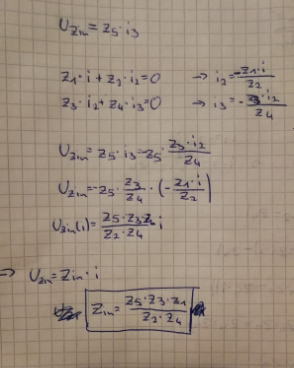 U_Zin = Z5 · i3
Z1 · i + Z2 · i2 = 0 → i2 = -Z1 · i / Z2
Z3 · i2 + Z4 · i3 = 0 → i3 = - Z3 · i2 / Z4
U_Zin = Z5 · i3 = -Z5 · Z3 · i2 / Z4
U_Zin = -Z5 · Z3 / Z4 · (- Z1 · i / Z2)
U_Zin(i) = Z5 · Z3 Z1 / Z2 · Z4 i
=> U_Zin = Zin · i
Zin = Z5 · Z3 · Z1 / Z2 · Z4